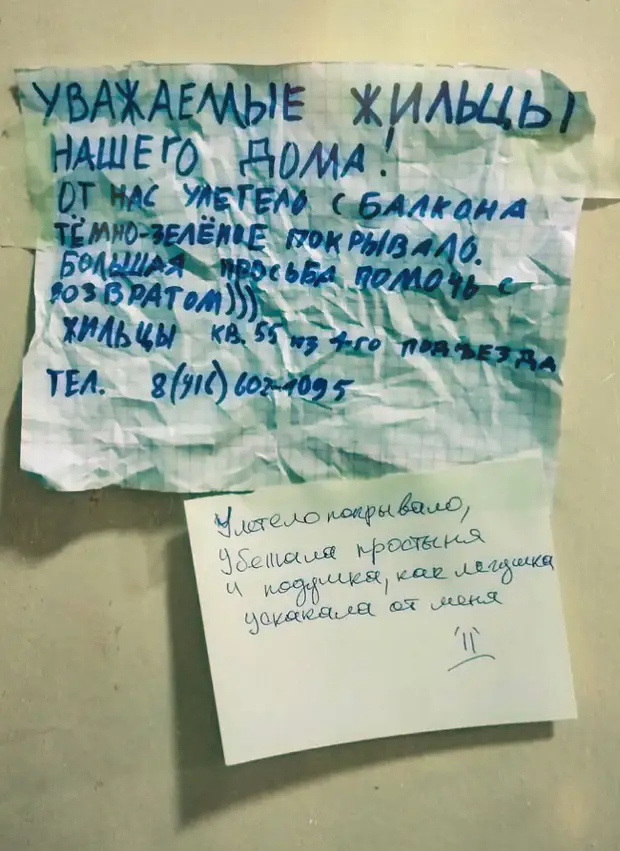 УВАЖАЕМЫЕ ЖИЛЬЦЫ
НАШЕГО ДОМА!
ОТ НАС УЛЕТЕЛО С БАЛКОНА
ТЁМНО-ЗЕЛЁНОЕ ПОКРЫВАЛО.
БОЛЬШАЯ ПРОСЬБА ПОМОЧЬ С
ВОЗВРАТОМ)))
ЖИЛЬЦЫ КВ. 55 ИЗ 4-ГО ПОДЪЕЗДА
ТЕЛ. 8(416)602-1095
Улетело покрывало,
убежала простыня
и подушка, как лягушка
ускакала от меня